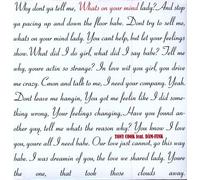 Why dont ya tell me, Whats on your mind lady? And stop
ya pacing up and down the floor babe. Dont try to tell me,
whats on your mind lady. You cant help, but let your feelings
show. What did I do girl, what did I say babe? Tell me
why, youre actin so strange? In love wit you girl, you drive
me crazy. Cmon and talk to me, I need your company. Yeah.
Dont leave me hangin, You got me feelin like I did some-
thing wrong, Your feelings changing. Have you found ano-
ther guy, tell me whats the reason why? You know I love
you, youre all I need babe. TONY COOK feat. DāM-FUNK Our love just cannot, go this way
babe. I was dreamin of you, the love we shared lady. Youre
the one, that took those clouds away.